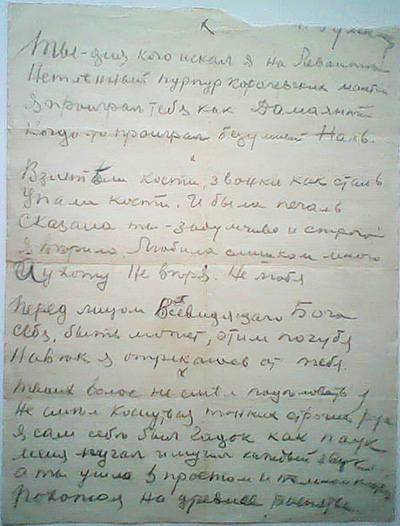 Ты - для кого искал я на Леванте
Нетленный пурпур королевских мантий
Я проиграл тебя как Дамаянти
Когда-то проиграл безумный Наль.
Взлетели кости, звонки как сталь
Упали кости. И была печаль
Сказала ты - задумчиво и строго
Я верила. Любила слишком много
И ухожу не веря. Не любя
Перед лицом Всевидящего Бога
Себя, быть может, этим погубя
Навек я отрекаюсь от тебя.
Твоих волос не смел поцеловать я
Не смел коснуться тонких строгих рук
Я сам себе был гадок как паук
Меня пугал и мучил каждый звук
а ты ушла в простом и темном
Похожая на древнее